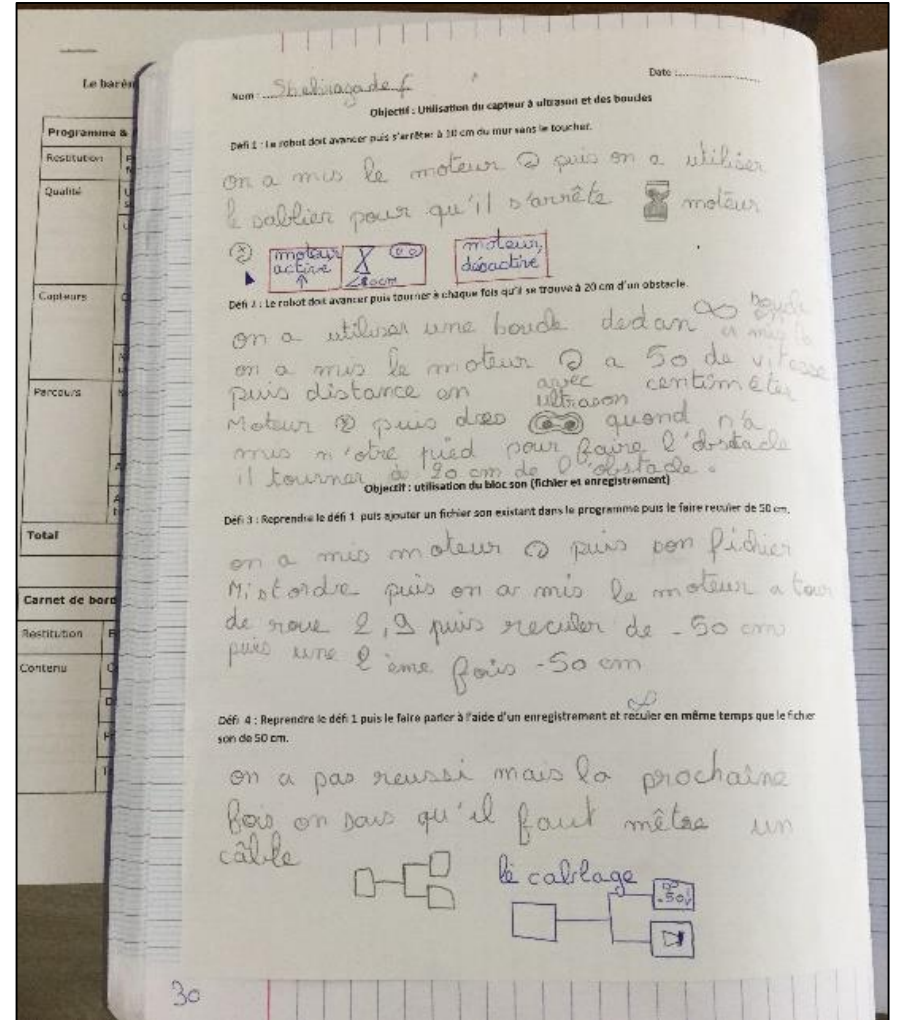 Le barè
Programme &
Restitution
Qualité
Capteurs
Parcours
Total
Carnet de bord
Restitution
Contenu
Nom : Date :
Objectif : Utilisation du capteur à ultrason et des boucles
Défi 1 : Le robot doit avancer puis s'arrêter à 10 cm du mur sans le toucher.
on a mis le moteur puis on a utiliser
le sablier pour qu'il s'arrête moteur
moteur active
<10cm
moteur, désactive
Défi 2 : Le robot doit avancer puis tourner à chaque fois qu'il se trouve à 20 cm d'un obstacle.
on a utiliser une boucle dedan ∞ boucle
on a mis le moteur a 50 de vitesse
puis distance en avec ultrason centimètre
Moteur puis quond n'a
mis n'otre pied pour faire l'obstacle
il tourner de 20 cm de l'obstacle.
Objectif : utilisation du bloc son (fichier et enregistrement)
Défi 3 : Reprendre le défi 1 puis ajouter un fichier son existant dans le programme puis le faire reculer de 50 cm.
on a mis moteur puis son fichier
puis on a mis le moteur a tour
de roue 2,9 puis reculer de -50 cm
puis une 2 ème fois -50 cm
Défi 4 : Reprendre le défi 1 puis le faire parler à l'aide d'un enregistrement et reculer en même temps que le fichier
son de 50 cm.
on a pas reussi mais la prochaine
fois on sais qu'il faut mêtre un
câble
le cablage
-50
30